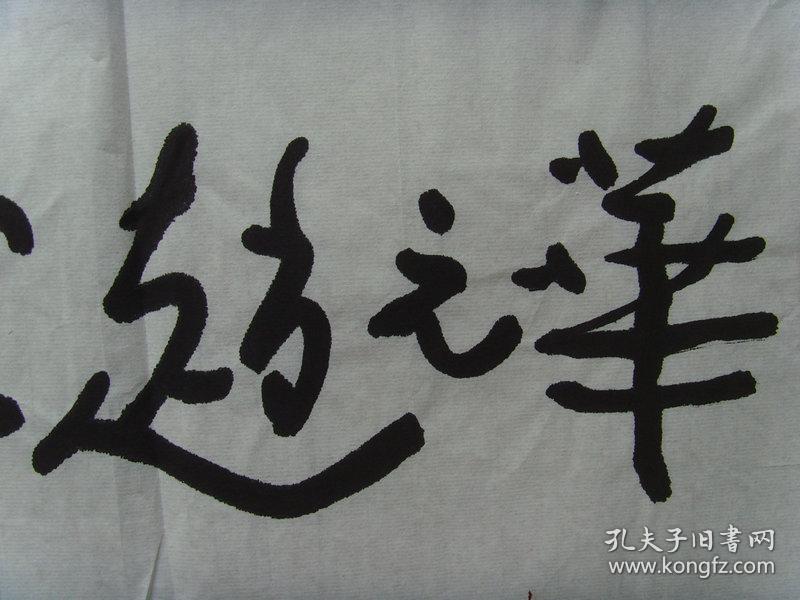 華之趙
孔夫子旧書网
www.kongfz.com